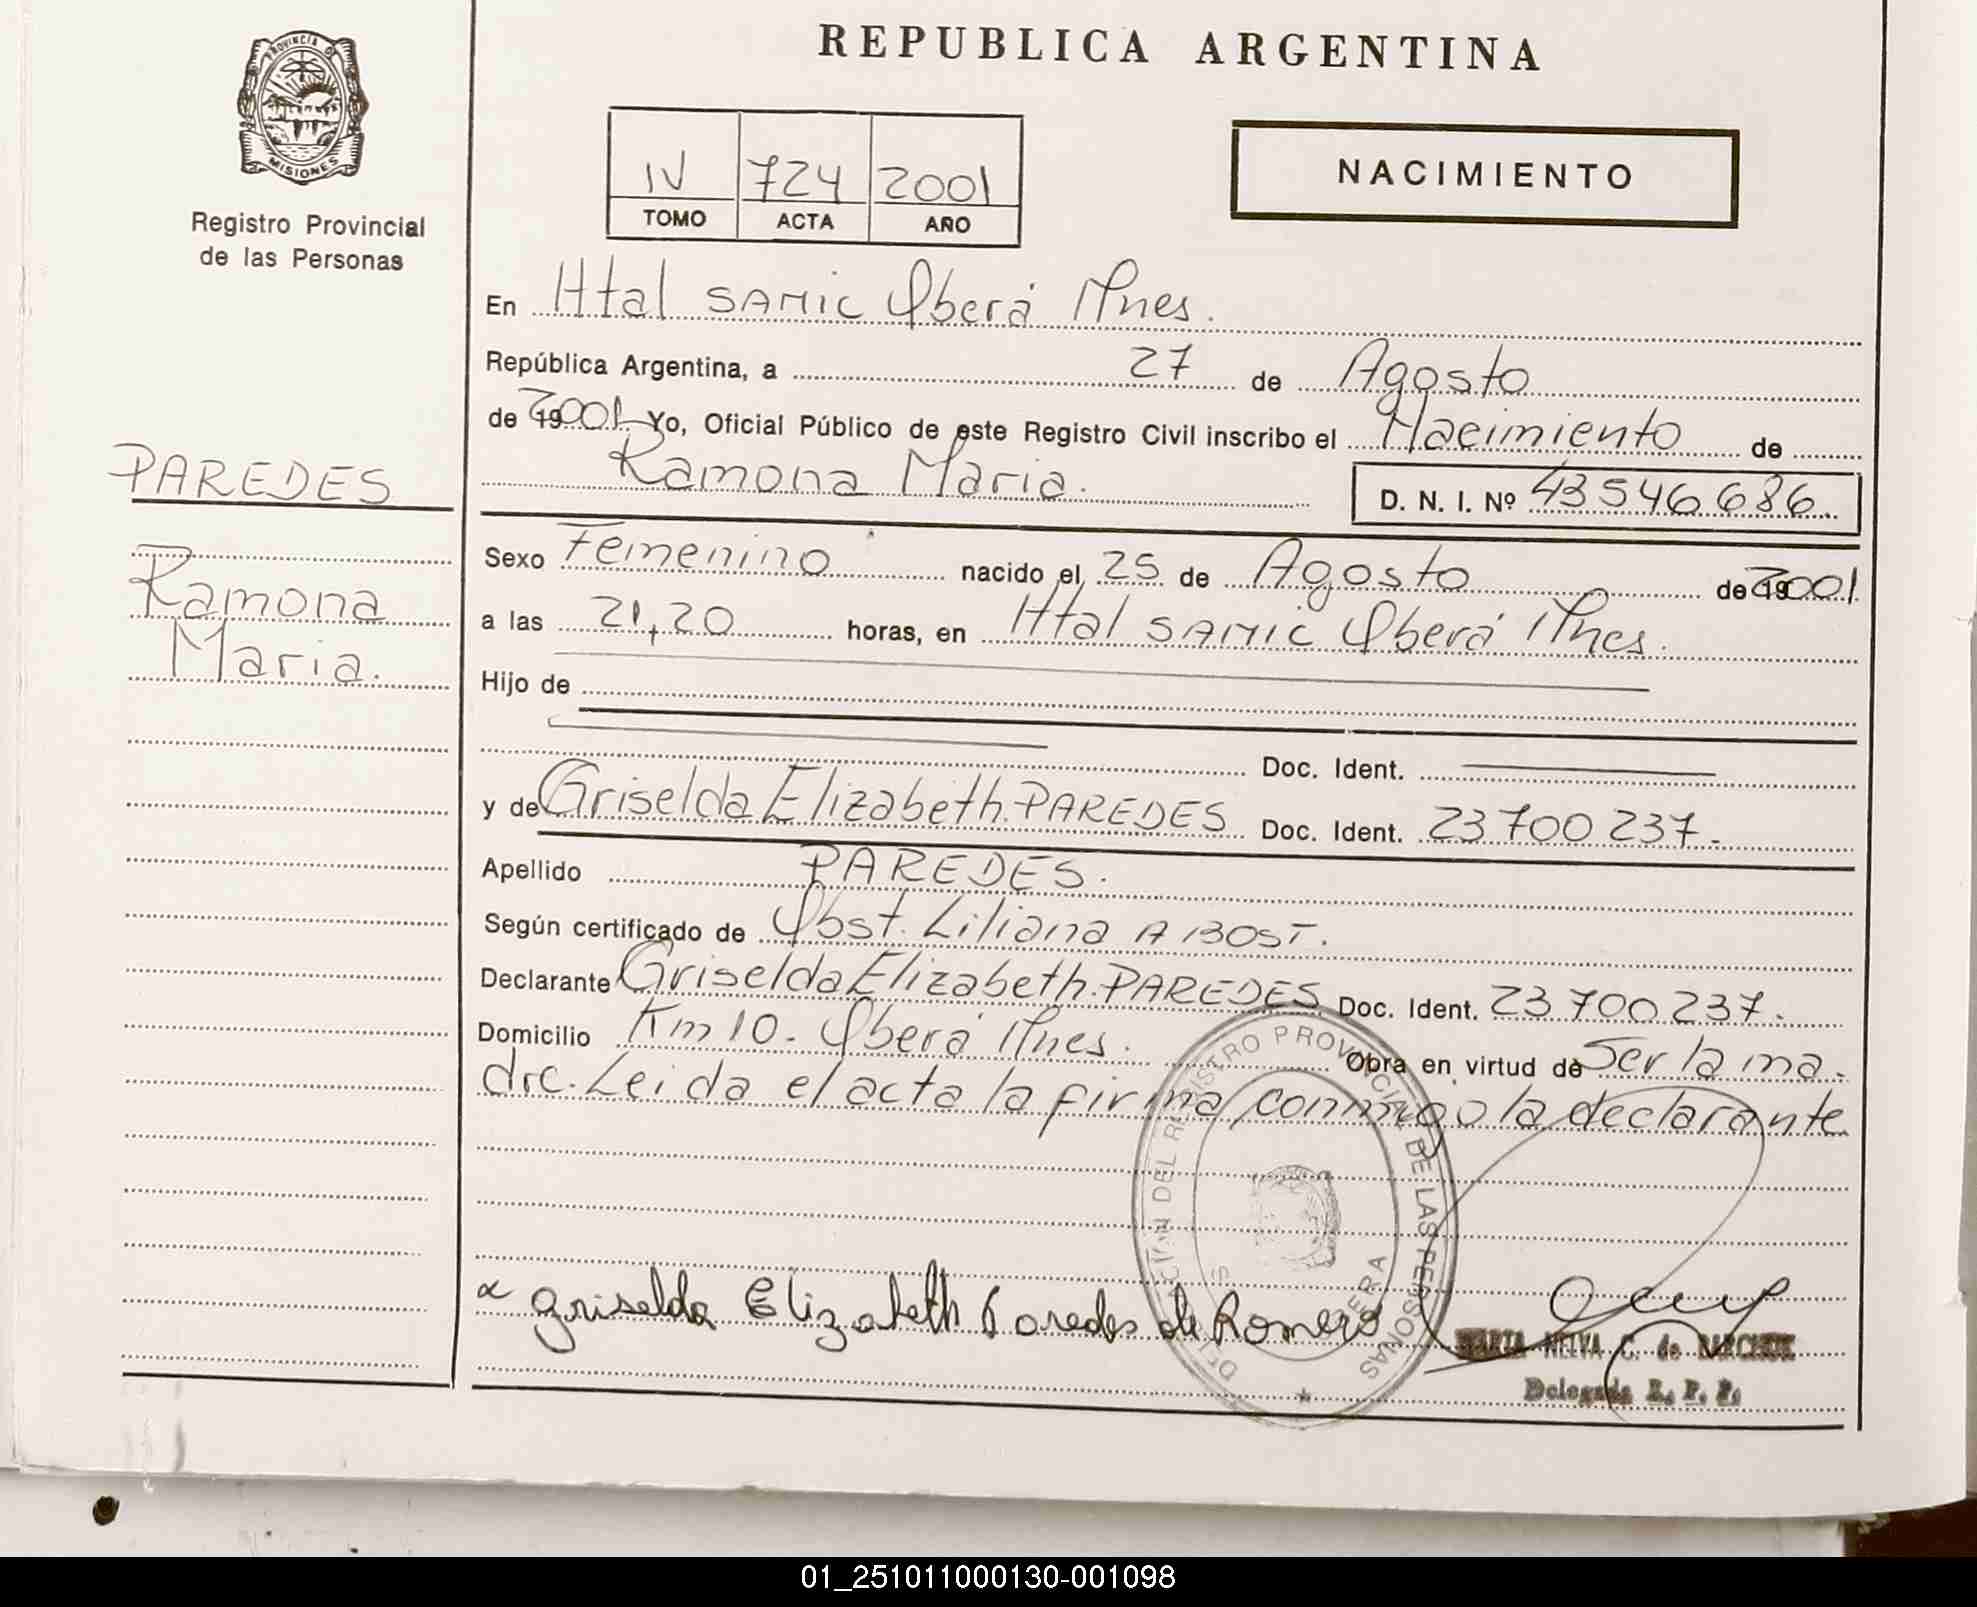 REPUBLICA ARGENTINA
PROVINCIA D
MISIONES
Registro Provincial
de las Personas
IV 724 2001
TOMO ACTA AÑO
NACIMIENTO
En Htal SAMIC Oberá Mnes.
República Argentina, a 27 de Agosto
de 192001 Yo, Oficial Público de este Registro Civil inscribo el Nacimiento de
Ramona Maria. D. N. I. Nº 43546686.
PAREDES
Ramona
Maria.
Sexo Femenino nacido el 25 de Agosto de 192001
a las 21,20 horas, en Htal SAMIC Oberá Mnes.
Hijo de
Doc. Ident.
y de Griselda Elizabeth PAREDES Doc. Ident. 23700237.
Apellido PAREDES.
Según certificado de Obst. Liliana A BOST.
Declarante Griselda Elizabeth PAREDES Doc. Ident. 23700237.
Domicilio Km 10. Oberá Mnes. Obra en virtud de Ser la ma-
dre. Leida el acta la firma conmigo la declarante
DEL REGISTRO PROVINCIAL DE LAS PERSONAS
Griselda Elizabeth Paredes de Romero
NELVA C. de
Delegada R. P. P.
01_251011000130-001098